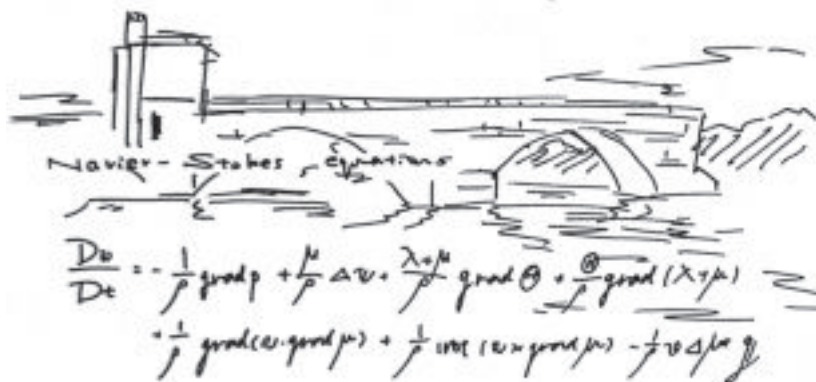 Navier-Stokes equations
Dv/Dt = - 1/ρ grad p + μ/ρ Δv + (λ+μ)/ρ grad Θ + Θ/ρ grad (λ+μ)
+ 1/ρ grad(v·grad μ) + 1/ρ rot (v×grad μ) - 1/ρ v Δμ